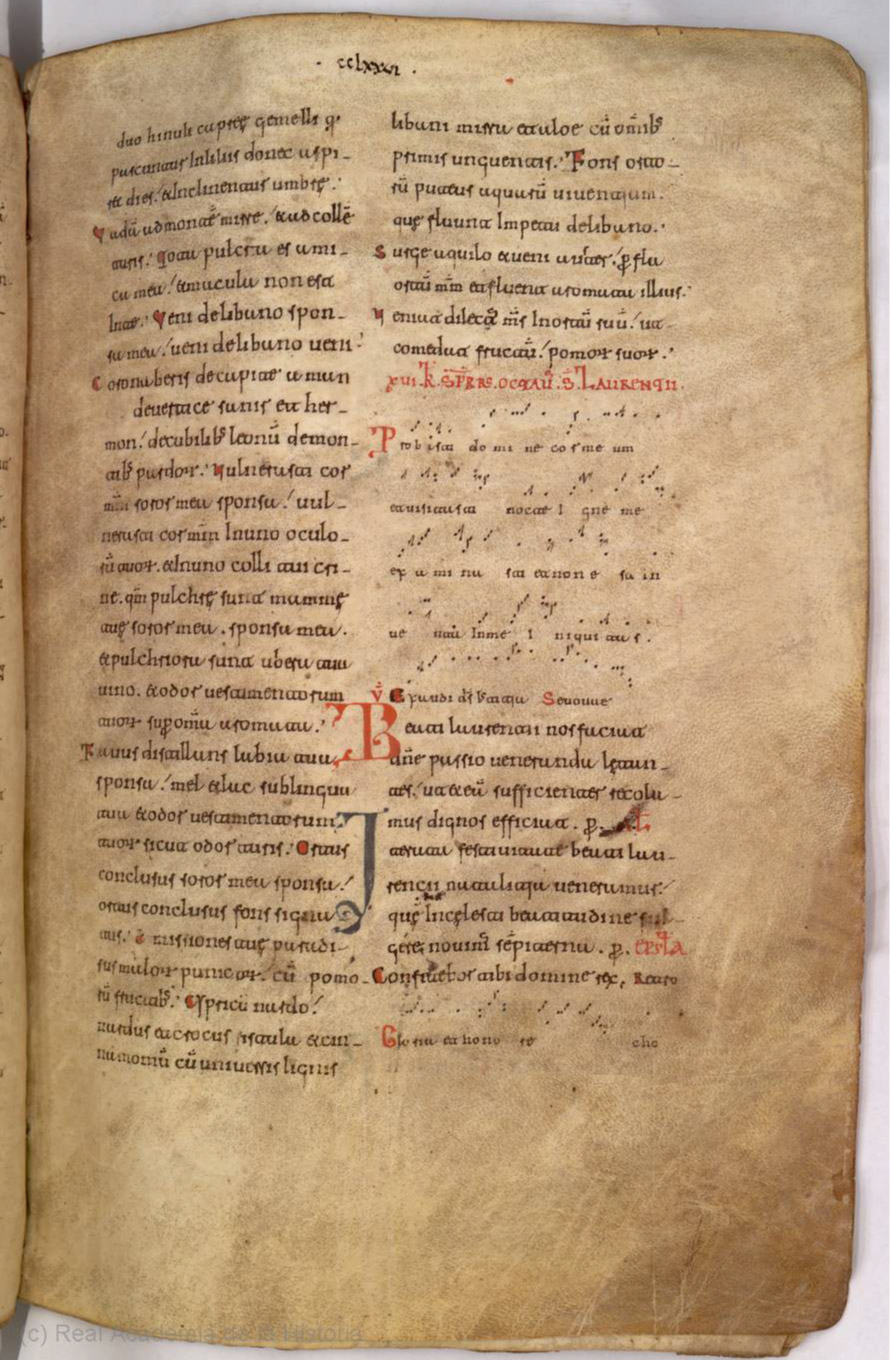 · cclxxxvi ·
duo hinuli capreę gemelli q'
pascuntur Inliliis donec aspi-
ret dies. & Inclinentur umbrę.
Vadā ad montē mirre. & ad collē
turis. Tota pulcra es ami-
ca mea. & macula non est
Inte. Veni delibano spon-
sa mea. ueni delibano ueni
Coronaberis decapite aman
deuertice sanir et her-
mon. decubilibꝫ leonū demon-
tibꝫ pardoꝝ. Vulnerasti cor
mm̄ soror mea sponsa. uul-
nerasti cor mm̄ Inuno oculo-
rū tuoꝝ. & Inuno colli tui cri-
ne. qm̄ pulchrę sunt mammę
tuę soror mea. sponsa mea.
& pulchriora sunt ubera tua
uino. & odor uestimentorum
tuoꝝ sup omīa aromata.
Fauus distillans labia tua
sponsa. mel & lac sublingua
tua & odor uestimentorum
tuoꝝ sicut odor turis. Ortus
conclusus soror mea sponsa.
ortus conclusus fons signa
tus. Emissiones tuę paradi-
sus maloꝝ punicoꝝ. cū pomo-
rū fructibꝫ. Cypricū nardo.
nardus et crocus fistula & cin-
namomū cū uniuersis lignis
libani mirra et aloe cū omībꝫ
primis unguentis. Fons orto-
rū puteus aquarū uiuentium.
quę fluunt Impetu delibano.
Surge aquilo & ueni auster. pfla
ortū mm̄ et fluent aromata illius.
Veniat dilectꝰ ms̄ Inortū suū. ut
comedat fructū. pomoꝝ suoꝝ.
xvi. K̄. SEPTBRS. OCTAŪ. S̄. LAURENTII.
Probasti domine cor me um
et uisitasti nocte I gne me
ex a mi na sti et non e sta in
ue nta Inme I niqui tas.
V̄ Exaudi ds̄ Seuouae
Beati laurentii nos faciat
dn̄e passio ueneranda lętan-
tes. ut & eū sufficienter recola-
mus dignos efficiat. p.
Iterata festiuitatē beati lau-
rentii natalicia ueneramur.
quę Incęlesti beatitudine ful-
gere nouim sēpiterna. p. EPSTLA
Confitebor tibi domine rex, Requiro
Gloria et hono re cho